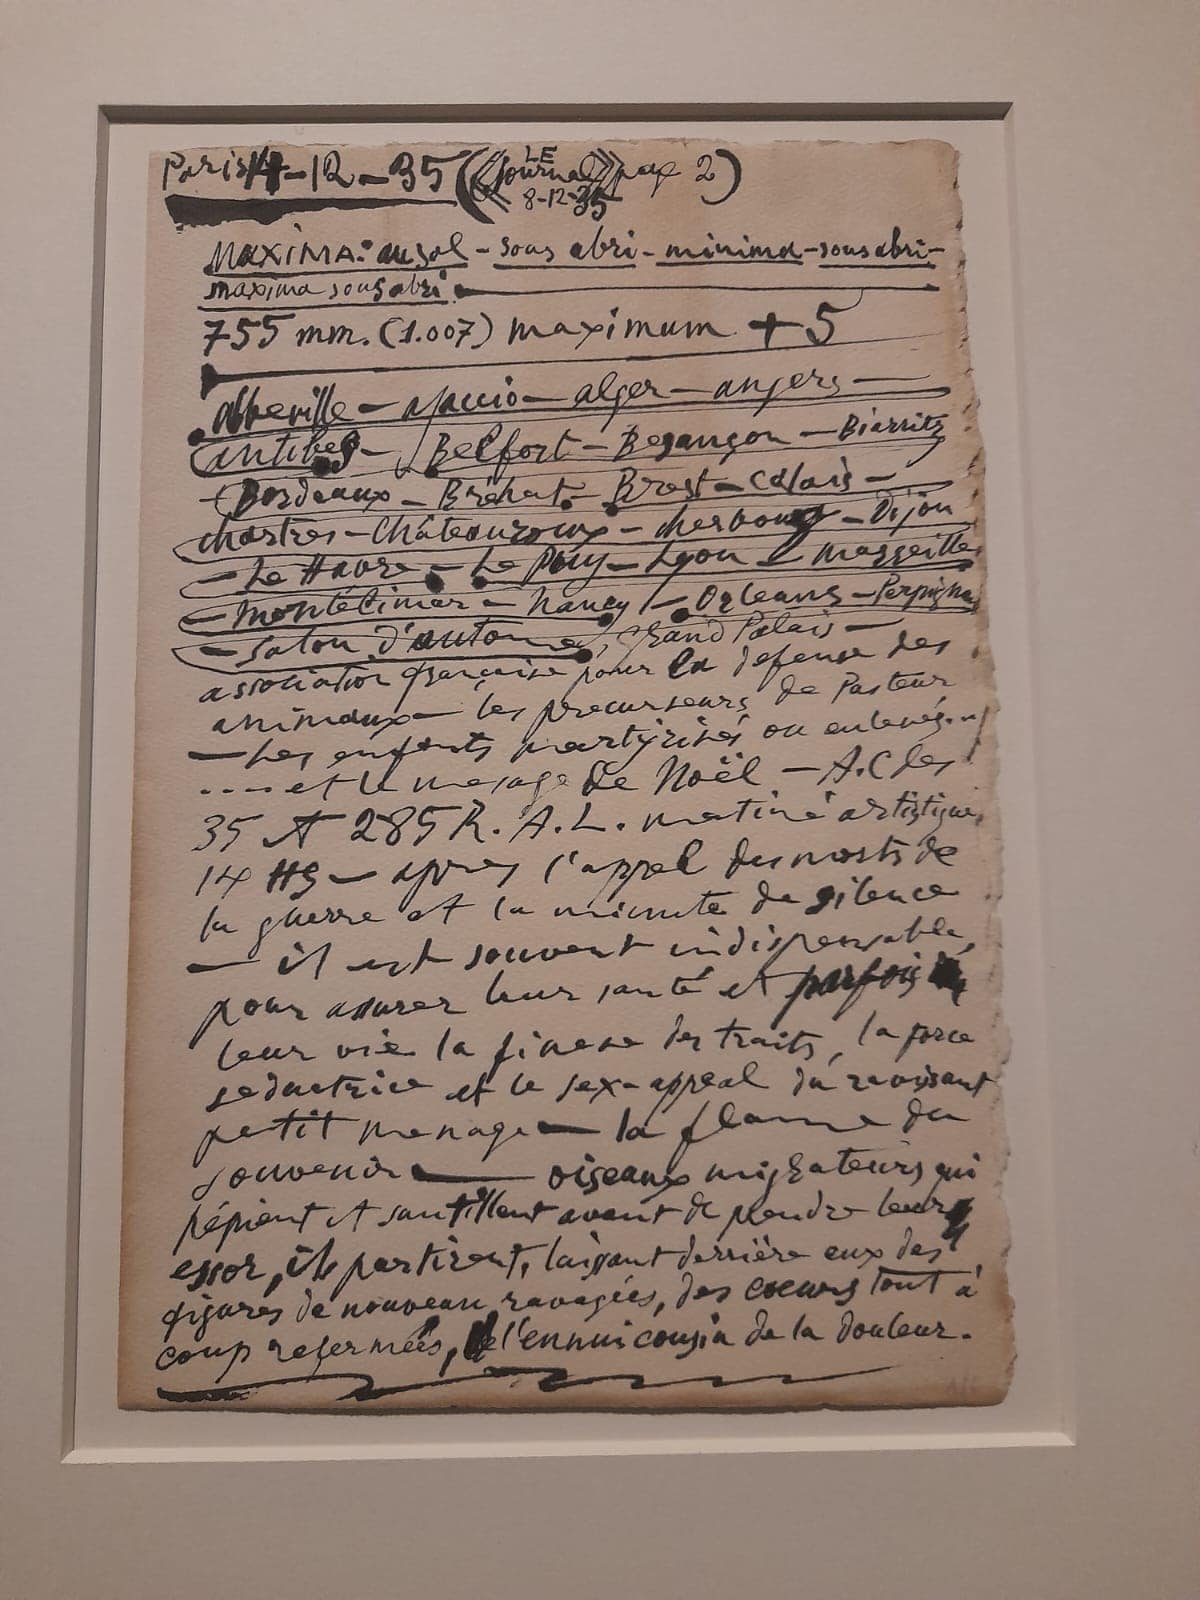 Paris 14-12-35 (« LE Journal » page 2)
8-12-35
MAXIMA: au sol - sous abri - minima - sous abri -
maxima sous abri
755 mm. (1.007) maximum + 5
abbeville - ajaccio - alger - angers -
antibes - Belfort - Besançon - Biarritz
- Bordeaux - Bréhat - Brest - Calais -
chartres - Châteauroux - cherbourg - Dijon
- Le Havre - Le Puy - Lyon - Marseille
- Montélimar - Nancy - Orleans - Perpignan
- Salon d'automne, grand Palais -
association française pour la defense des
animaux - les precurseurs de Pasteur
- Les enfants martyrisés ou enlevés...
.... et le mesage de Noël - A.C des
35 et 285 R. A. L. matiné artistique
14 HS - apres l'appel des morts de
la guerre et la minute de silence
- il est souvent indispensable,
pour assurer leur santé et parfois
leur vie la finesse des traits, la force
seductrice et le sex-appeal du ravissant
petit menage - la flamme du
souvenir - oiseaux migrateurs qui
pépient et sautillent avant de prendre leur
essor, ils partirent, laissant derrière eux des
figures de nouveau ravagées, des coeurs tout à
coup refermés, l'ennui cousin de la douleur.